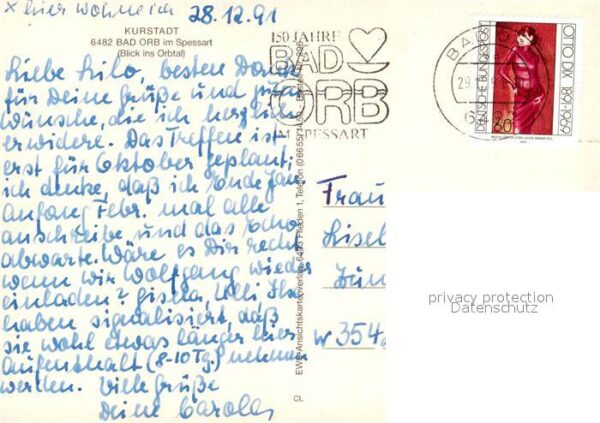 x hier wohne ich 28.12.91
KURSTADT
6482 BAD ORB im Spessart
(Blick ins Orbtal)
Liebe Lilo, besten Dank
für Deine Grüße und
Wünsche, die ich herzlich
erwidere. Das Treffen ist
erst für Oktober geplant;
ich denke, daß ich Ende Jan
Anfang Febr. mal alle
anschreibe und das Echo
abwarte. Wäre es Dir recht
wenn wir Wolfgang wieder
einladen? Gisela,
haben signalisiert, daß
sie wohl etwas länger hier
Aufenthalt (8-10 Tg.) nehmen
werden. Viele Grüße
Deine Carola
150 JAHRE
BAD
ORB
IM SPESSART
BAD
29.
OTTO DIX 1891-1969
DEUTSCHE BUNDESPOST
60
EWK Ansichtskartenverlag 6403 Flieden 1, Telefon (06655)
CL
Frau
Lisel
W 354
privacy protection
Datenschutz